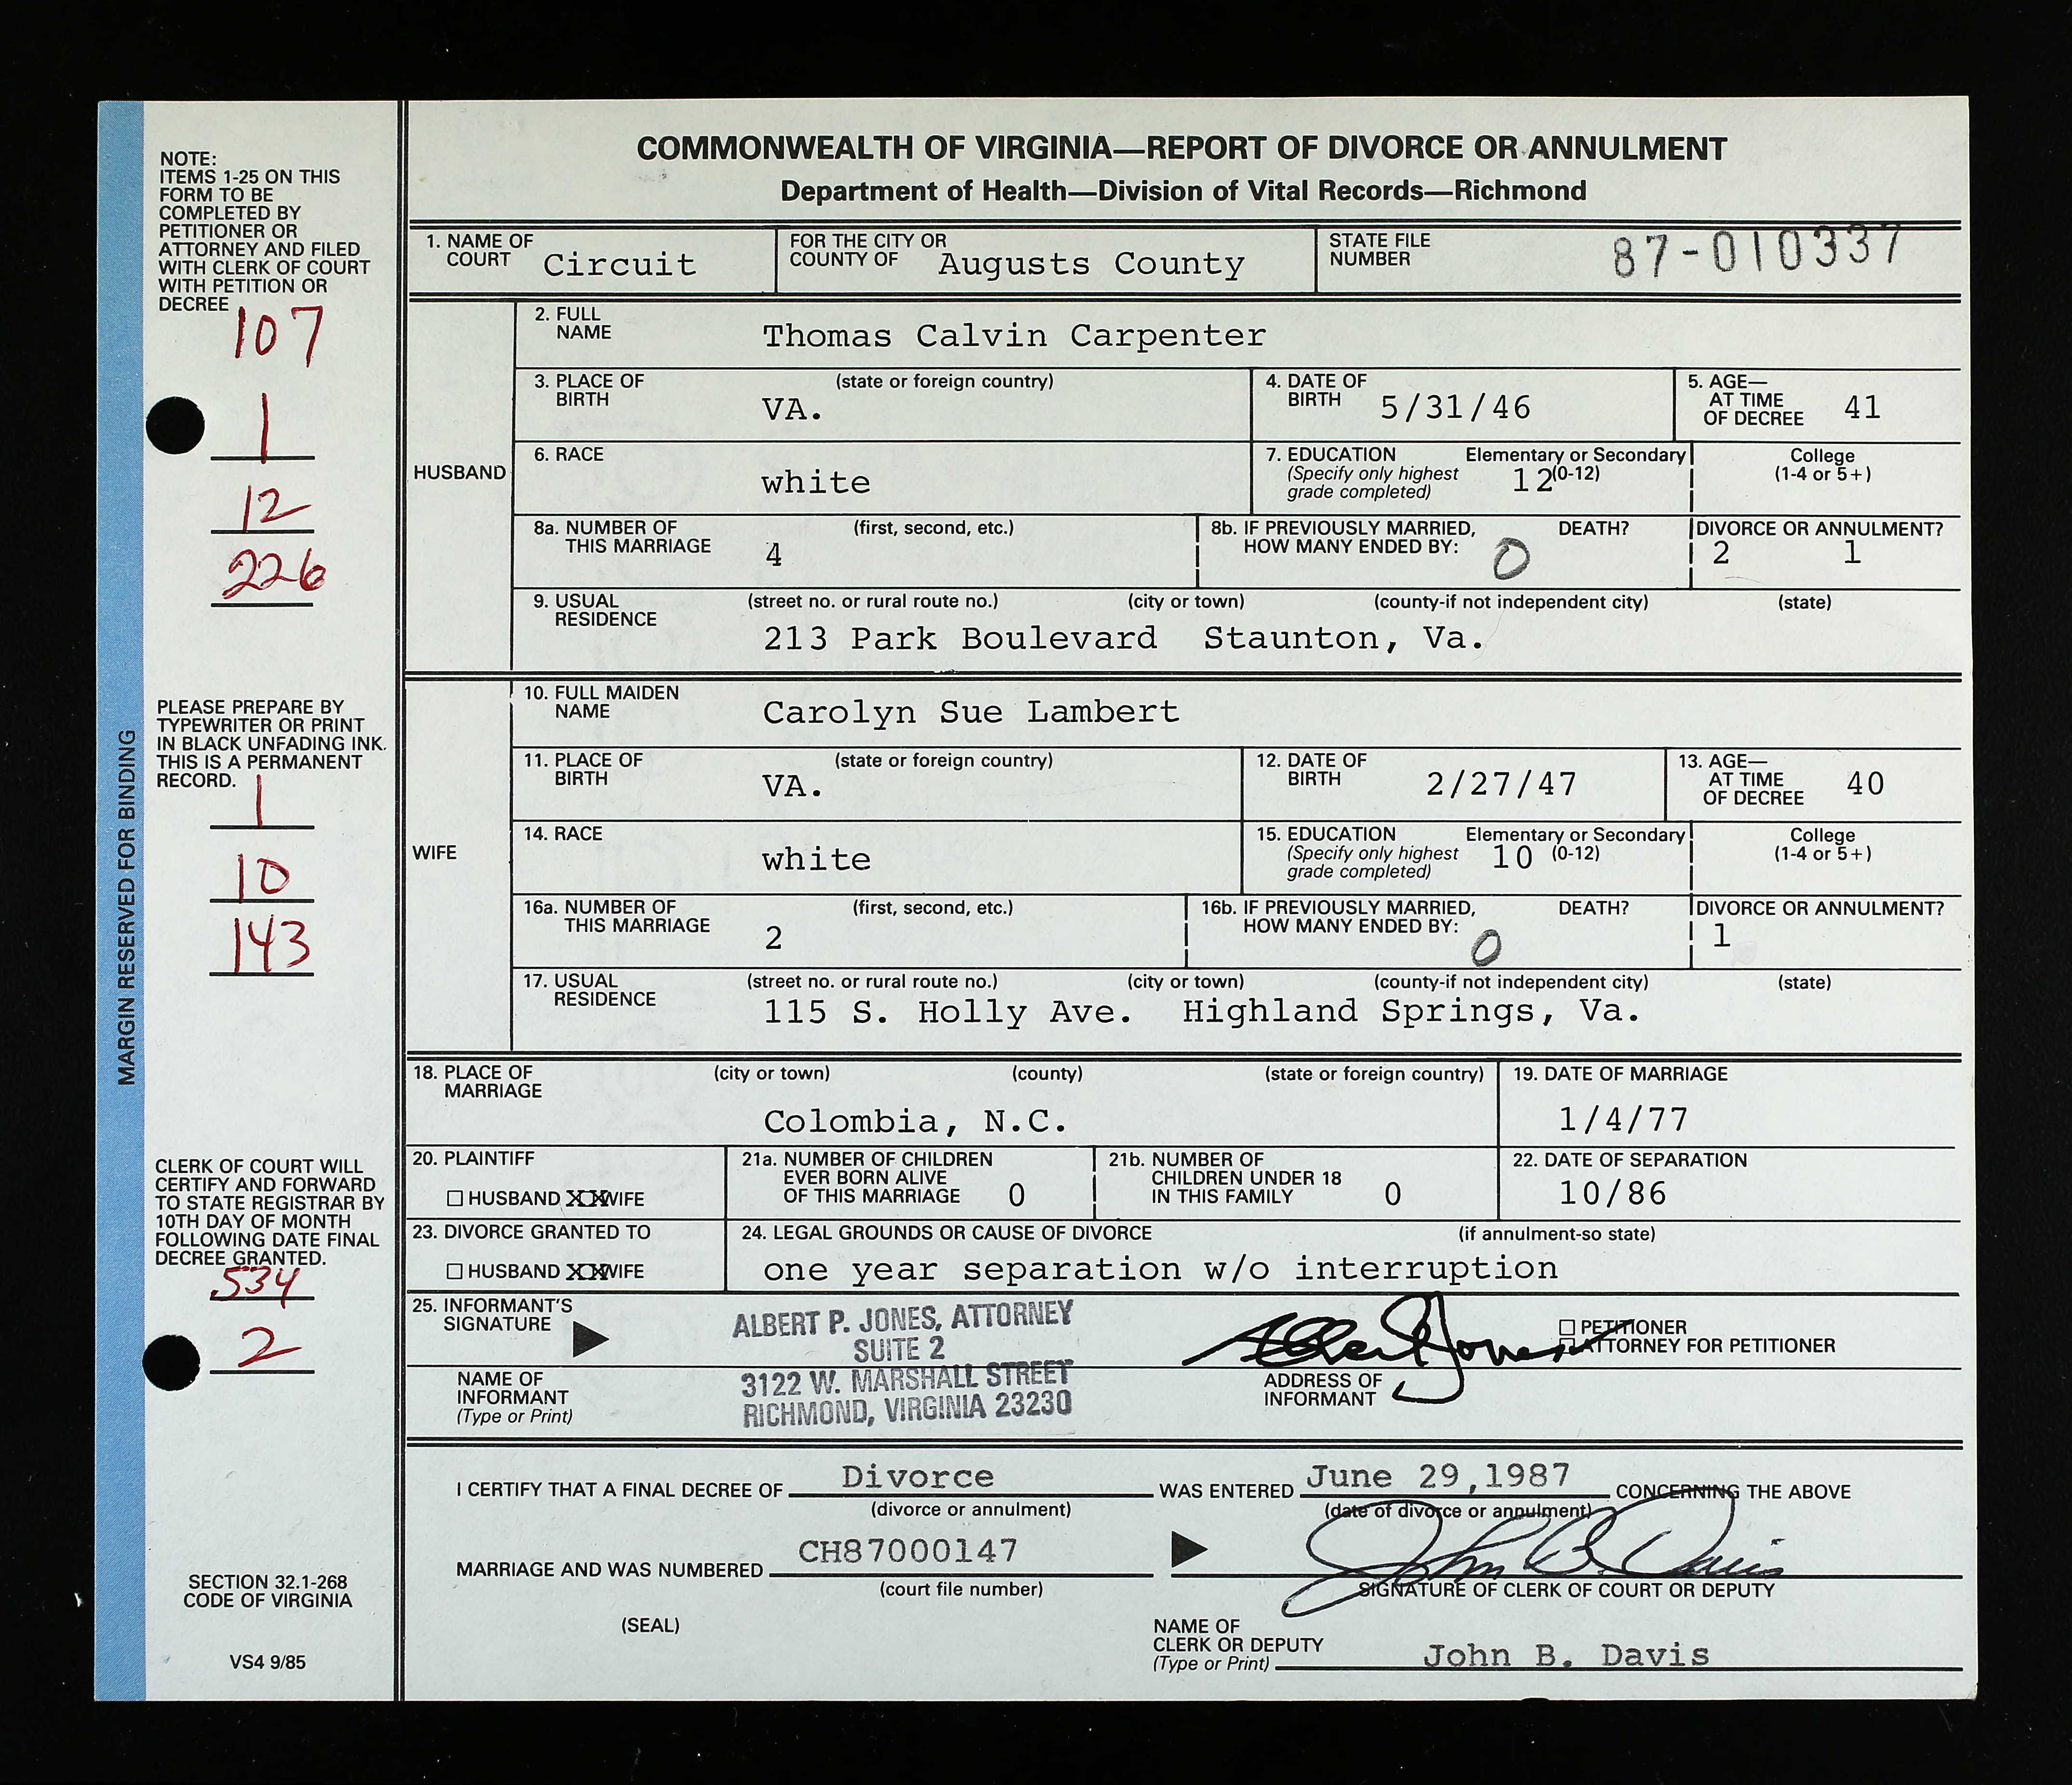 COMMONWEALTH OF VIRGINIA—REPORT OF DIVORCE OR ANNULMENT
Department of Health—Division of Vital Records—Richmond
NOTE:
ITEMS 1-25 ON THIS
FORM TO BE
COMPLETED BY
PETITIONER OR
ATTORNEY AND FILED
WITH CLERK OF COURT
WITH PETITION OR
DECREE
107
1
12
226
PLEASE PREPARE BY
TYPEWRITER OR PRINT
IN BLACK UNFADING INK.
THIS IS A PERMANENT
RECORD.
1
10
143
CLERK OF COURT WILL
CERTIFY AND FORWARD
TO STATE REGISTRAR BY
10TH DAY OF MONTH
FOLLOWING DATE FINAL
DECREE GRANTED.
534
2
SECTION 32.1-268
CODE OF VIRGINIA
VS4 9/85
MARGIN RESERVED FOR BINDING
1. NAME OF COURT Circuit
FOR THE CITY OR COUNTY OF Augusts County
STATE FILE NUMBER 87-010337
HUSBAND
2. FULL NAME Thomas Calvin Carpenter
3. PLACE OF BIRTH (state or foreign country) VA.
4. DATE OF BIRTH 5/31/46
5. AGE— AT TIME OF DECREE 41
6. RACE white
7. EDUCATION (Specify only highest grade completed) Elementary or Secondary (0-12) 12
College (1-4 or 5+)
8a. NUMBER OF THIS MARRIAGE (first, second, etc.) 4
8b. IF PREVIOUSLY MARRIED, HOW MANY ENDED BY: DEATH? 0
DIVORCE OR ANNULMENT? 2 1
9. USUAL RESIDENCE (street no. or rural route no.) (city or town) (county-if not independent city) (state)
213 Park Boulevard Staunton, Va.
WIFE
10. FULL MAIDEN NAME Carolyn Sue Lambert
11. PLACE OF BIRTH (state or foreign country) VA.
12. DATE OF BIRTH 2/27/47
13. AGE— AT TIME OF DECREE 40
14. RACE white
15. EDUCATION (Specify only highest grade completed) Elementary or Secondary (0-12) 10
College (1-4 or 5+)
16a. NUMBER OF THIS MARRIAGE (first, second, etc.) 2
16b. IF PREVIOUSLY MARRIED, HOW MANY ENDED BY: DEATH? 0
DIVORCE OR ANNULMENT? 1
17. USUAL RESIDENCE (street no. or rural route no.) (city or town) (county-if not independent city) (state)
115 S. Holly Ave. Highland Springs, Va.
18. PLACE OF MARRIAGE (city or town) (county) (state or foreign country)
Colombia, N.C.
19. DATE OF MARRIAGE 1/4/77
20. PLAINTIFF
☐ HUSBAND XX WIFE
21a. NUMBER OF CHILDREN EVER BORN ALIVE OF THIS MARRIAGE 0
21b. NUMBER OF CHILDREN UNDER 18 IN THIS FAMILY 0
22. DATE OF SEPARATION 10/86
23. DIVORCE GRANTED TO
☐ HUSBAND XX WIFE
24. LEGAL GROUNDS OR CAUSE OF DIVORCE (if annulment-so state)
one year separation w/o interruption
25. INFORMANT'S SIGNATURE
ALBERT P. JONES, ATTORNEY
SUITE 2
3122 W. MARSHALL STREET
RICHMOND, VIRGINIA 23230
Albert P Jones
☐ PETITIONER
☐ ATTORNEY FOR PETITIONER
NAME OF INFORMANT (Type or Print)
ADDRESS OF INFORMANT
I CERTIFY THAT A FINAL DECREE OF Divorce WAS ENTERED June 29,1987 CONCERNING THE ABOVE
(divorce or annulment) (date of divorce or annulment)
MARRIAGE AND WAS NUMBERED CH87000147
(court file number)
John B. Davis
SIGNATURE OF CLERK OF COURT OR DEPUTY
(SEAL)
NAME OF CLERK OR DEPUTY (Type or Print) John B. Davis